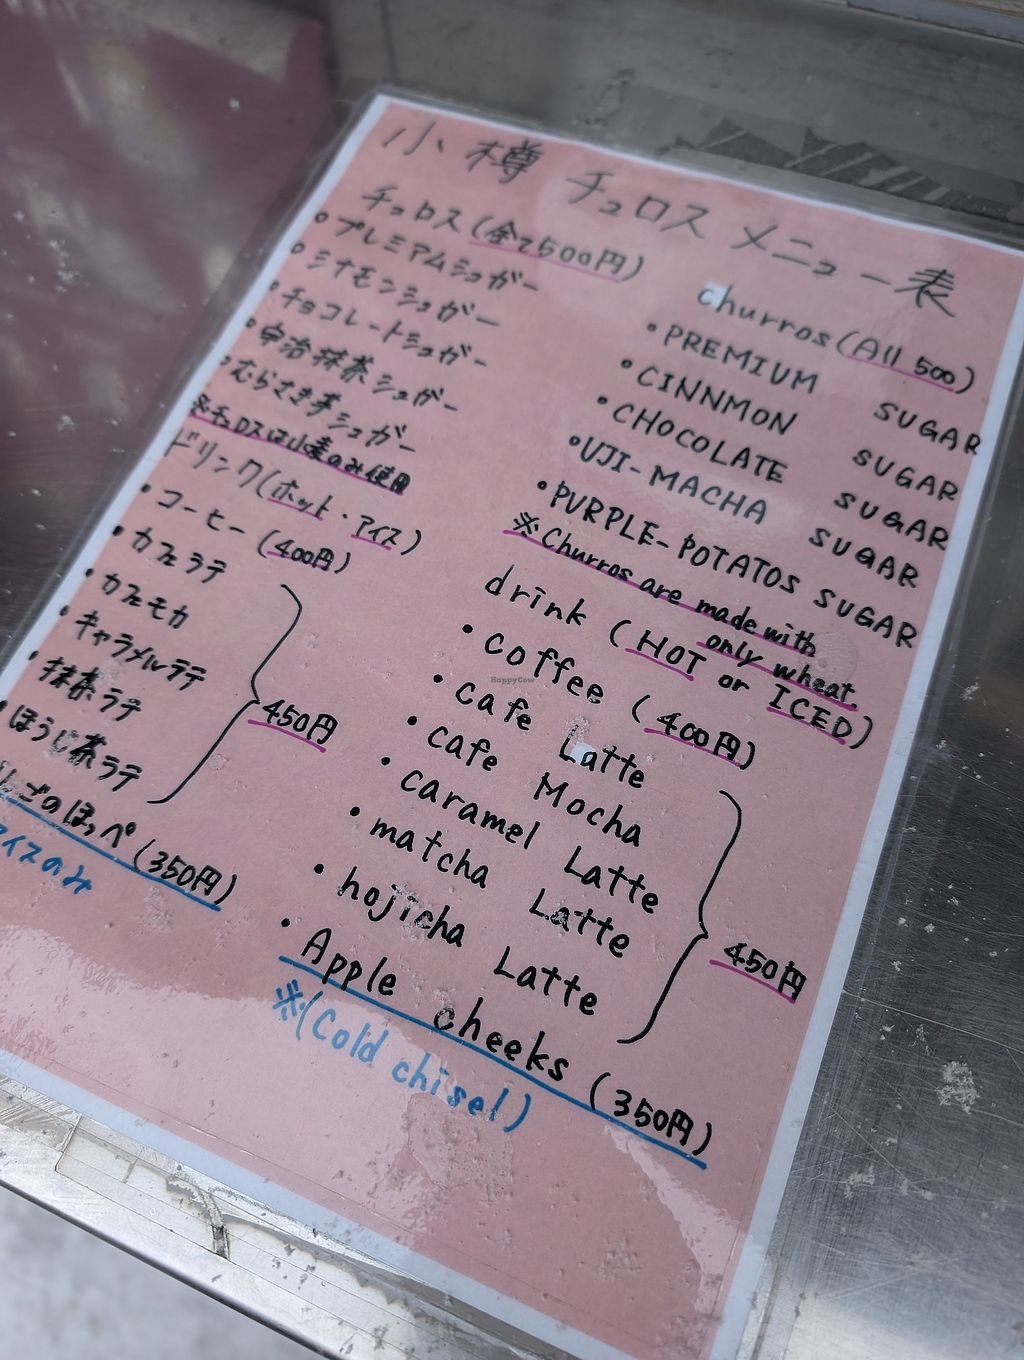 小樽 チュロス メニュー表
チュロス(全て500円)
・プレミアムシュガー
・シナモンシュガー
・チョコレートシュガー
・宇治抹茶シュガー
・むらさき芋シュガー
※チュロスは小麦のみ使用
ドリンク(ホット・アイス)
・コーヒー (400円)
・カフェラテ
・カフェモカ
・キャラメルラテ
・抹茶ラテ
・ほうじ茶ラテ
450円
りんごのほっぺ(350円)
アイスのみ
churros(All 500)
・PREMIUM SUGAR
・CINNMON SUGAR
・CHOCOLATE SUGAR
・UJI-MACHA SUGAR
・PURPLE-POTATOS SUGAR
※Churros are made with
only wheat.
drink (HOT or ICED)
・coffee (400円)
・cafe Latte
・cafe Mocha
・caramel Latte
・matcha Latte
・hojicha Latte
450円
・Apple cheeks (350円)
※(Cold chisel)
HappyCow